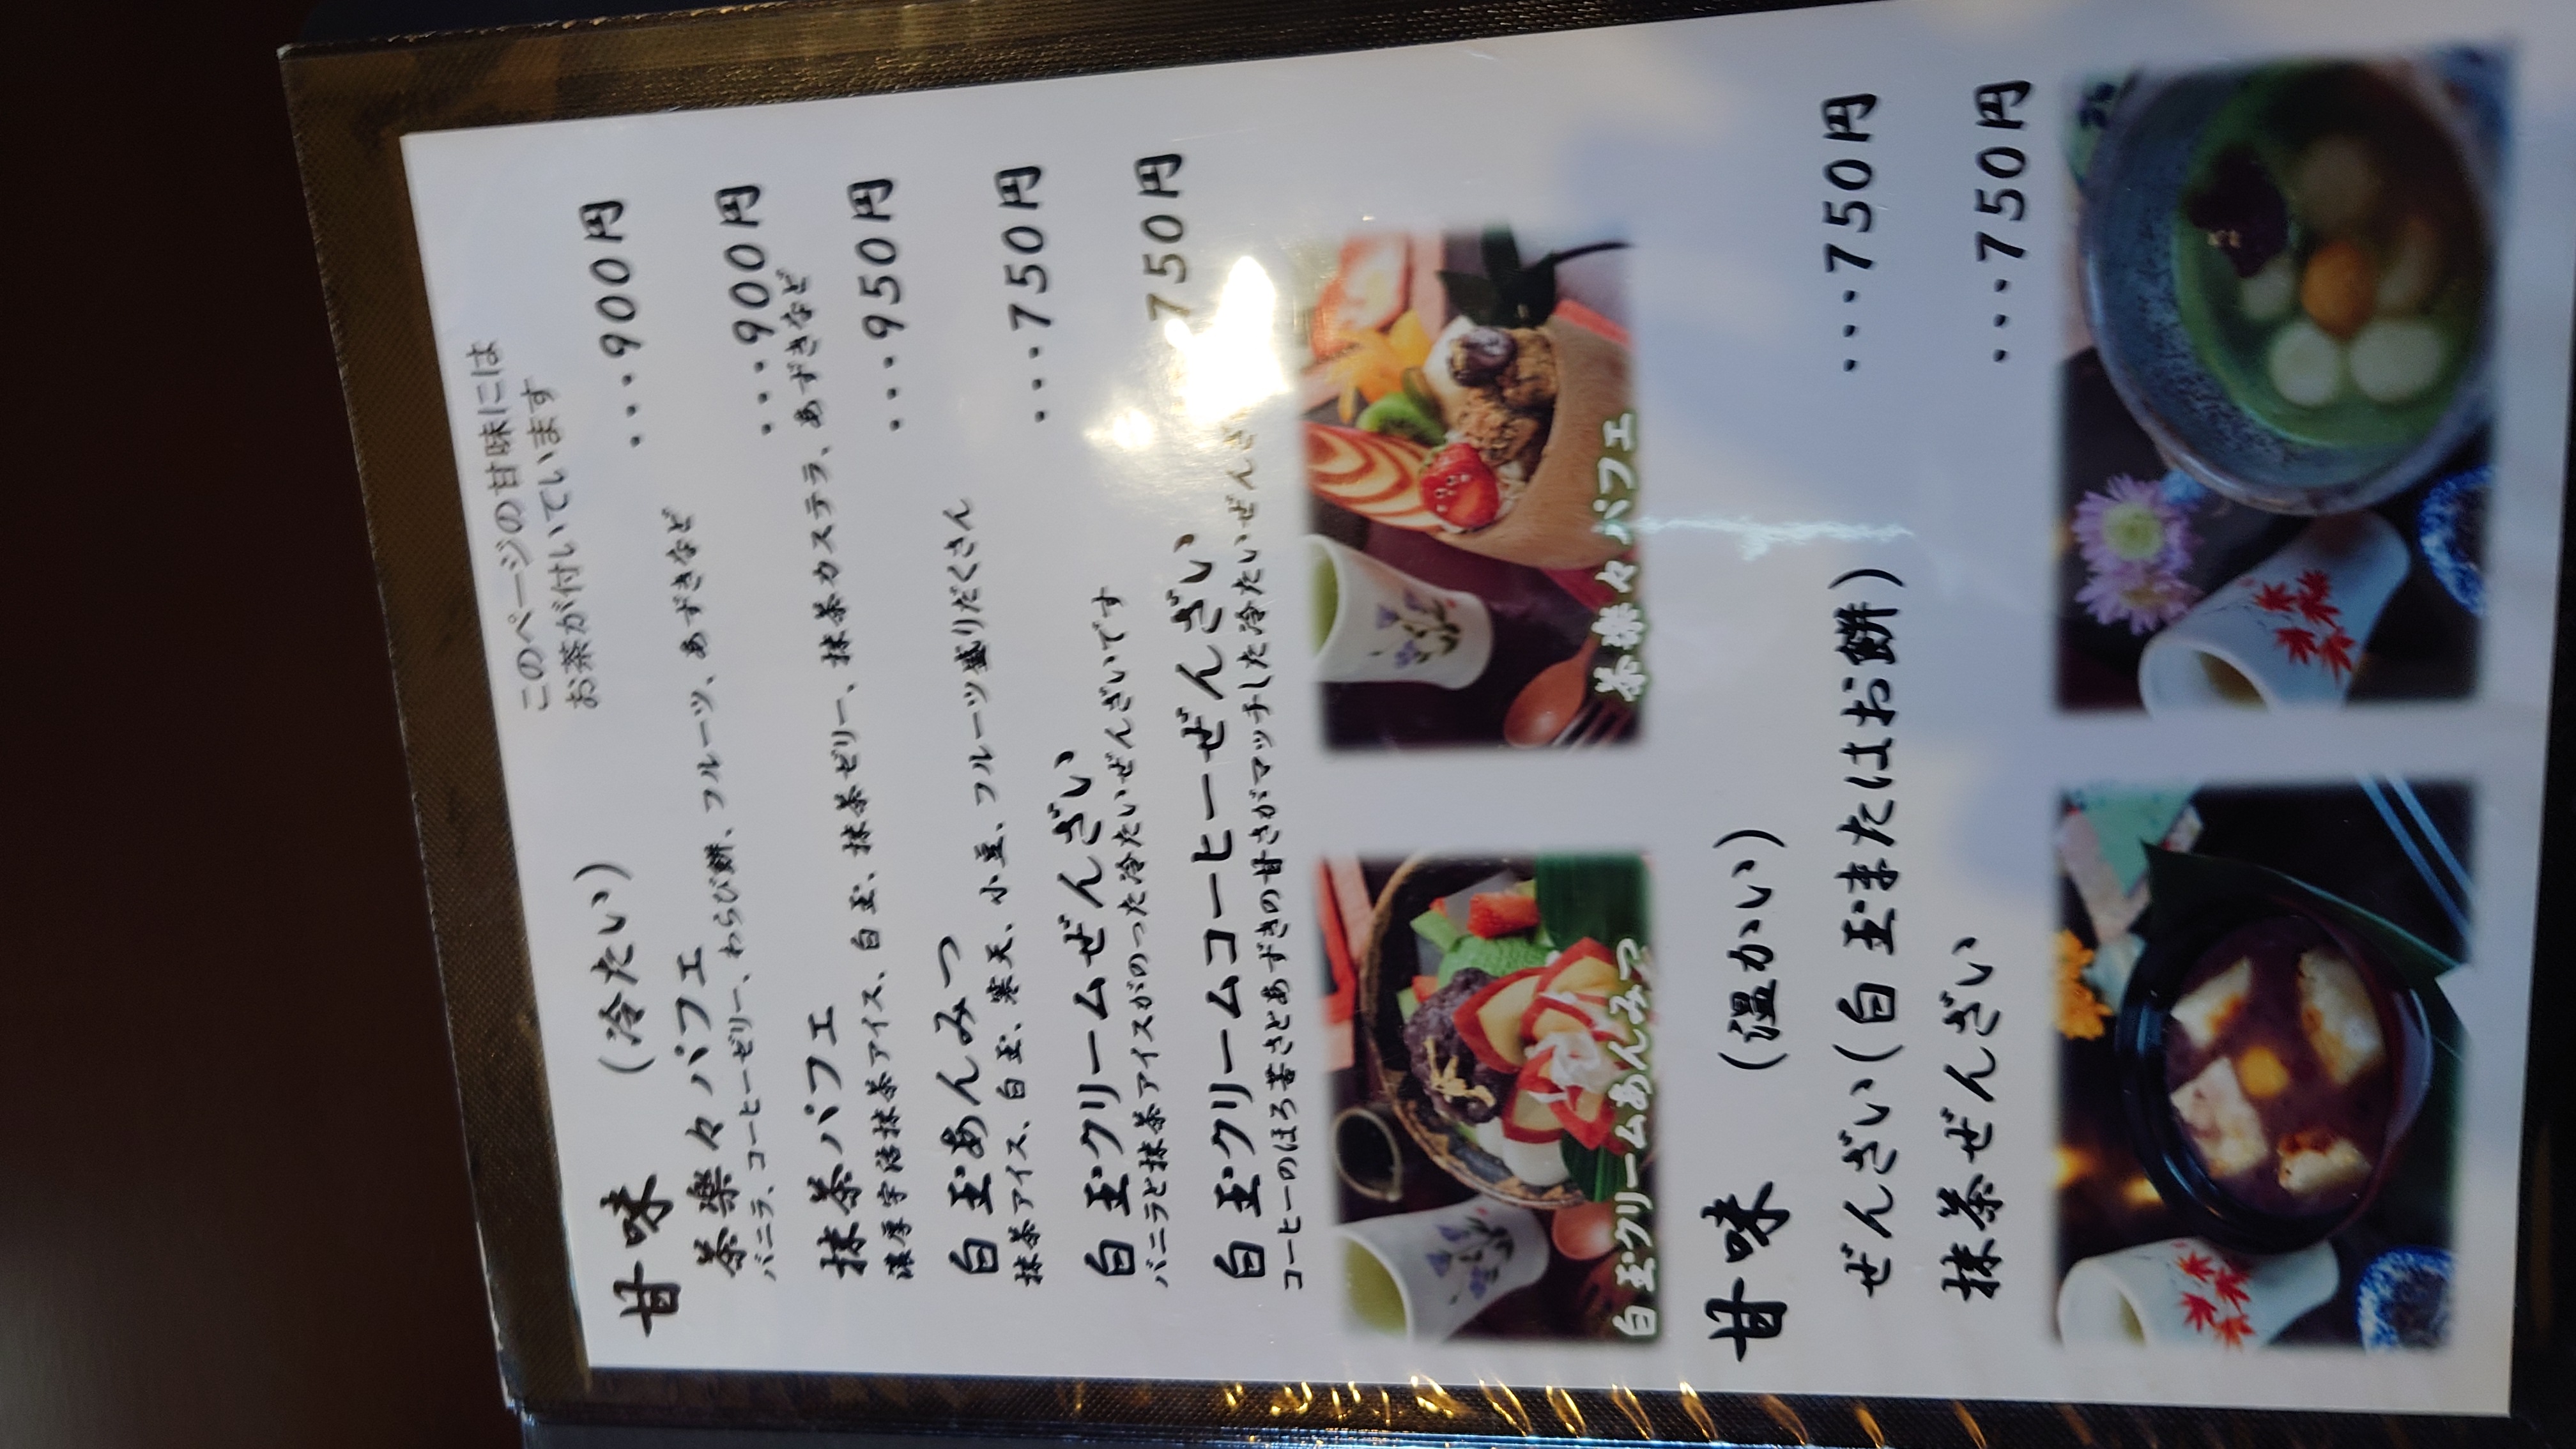 このページの甘味には
お茶が付いています
甘味 (冷たい)
茶樂々パフェ ・・・900円
バニラ、コーヒーゼリー、わらび餅、フルーツ、あずきなど
抹茶パフェ ・・・900円
濃厚宇治抹茶アイス、白玉、抹茶ゼリー、抹茶カステラ、あずきなど
白玉あんみつ ・・・950円
抹茶アイス、白玉、寒天、小豆、フルーツ盛りだくさん
白玉クリームぜんざい ・・・750円
バニラと抹茶アイスがのった冷たいぜんざいです
白玉クリームコーヒーぜんざい 750円
コーヒーのほろ苦さとあずきの甘さがマッチした冷たいぜんざ
白玉クリームあんみつ
茶樂々パフェ
甘味 (温かい)
ぜんざい(白玉またはお餅) ・・・750円
抹茶ぜんざい ・・・750円